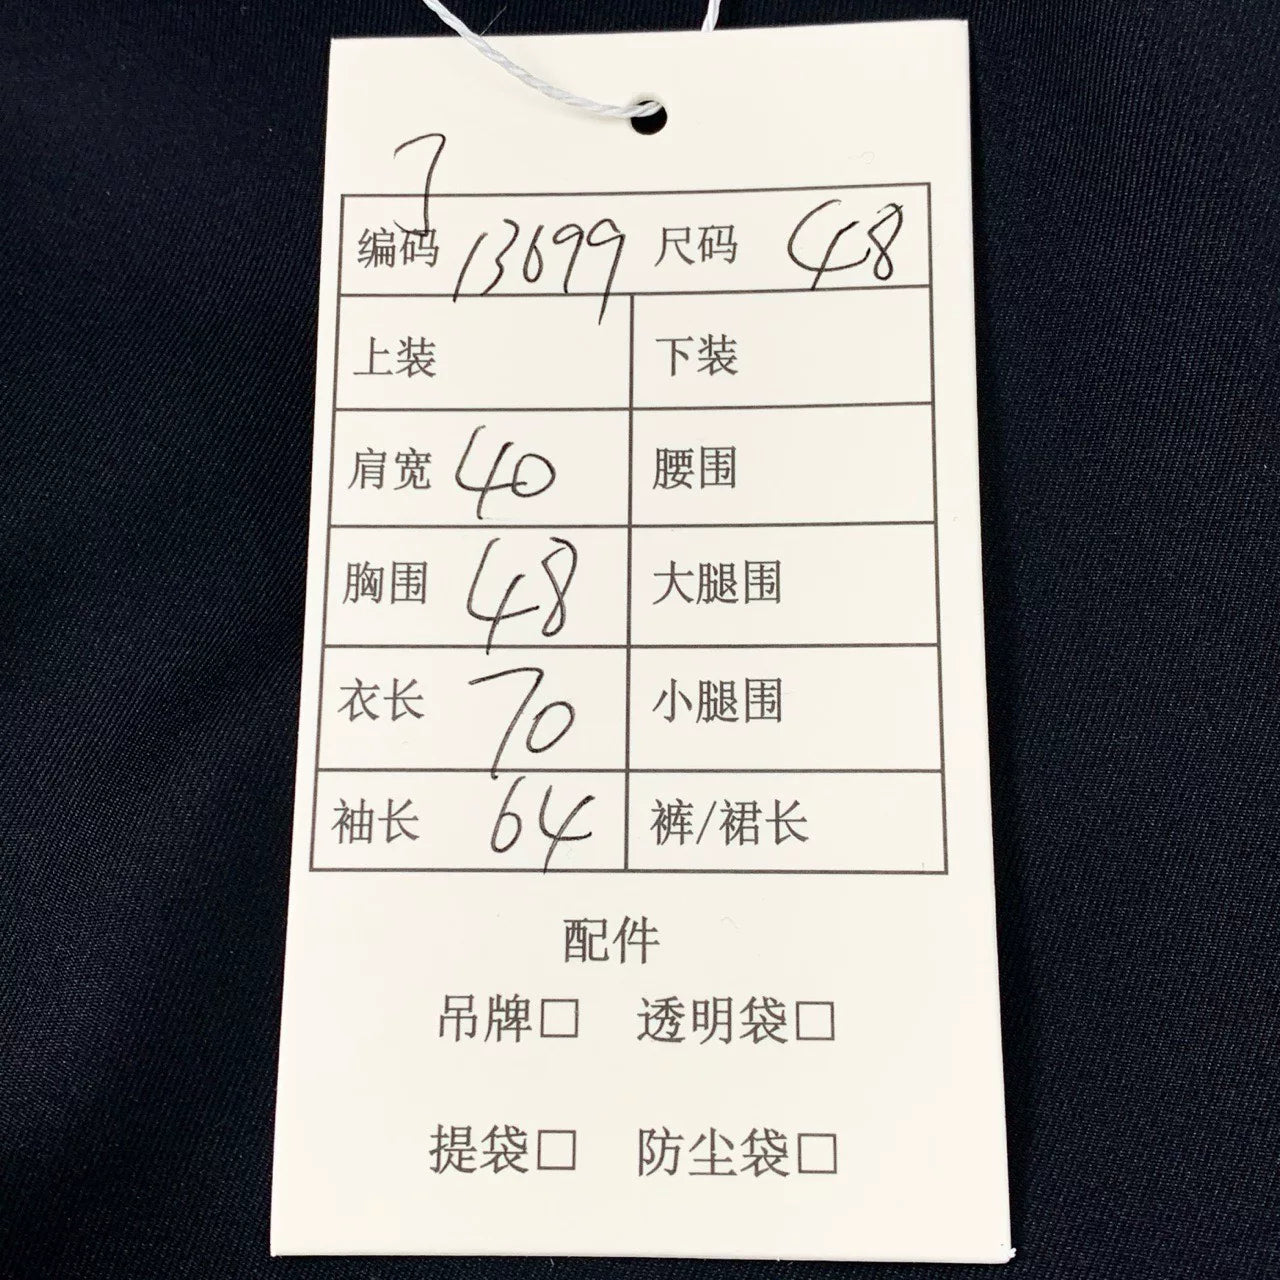 编码 13699 尺码 48
上装 下装
肩宽 40 腰围
胸围 48 大腿围
衣长 70 小腿围
袖长 64 裤/裙长
配件
吊牌□ 透明袋□
提袋□ 防尘袋□